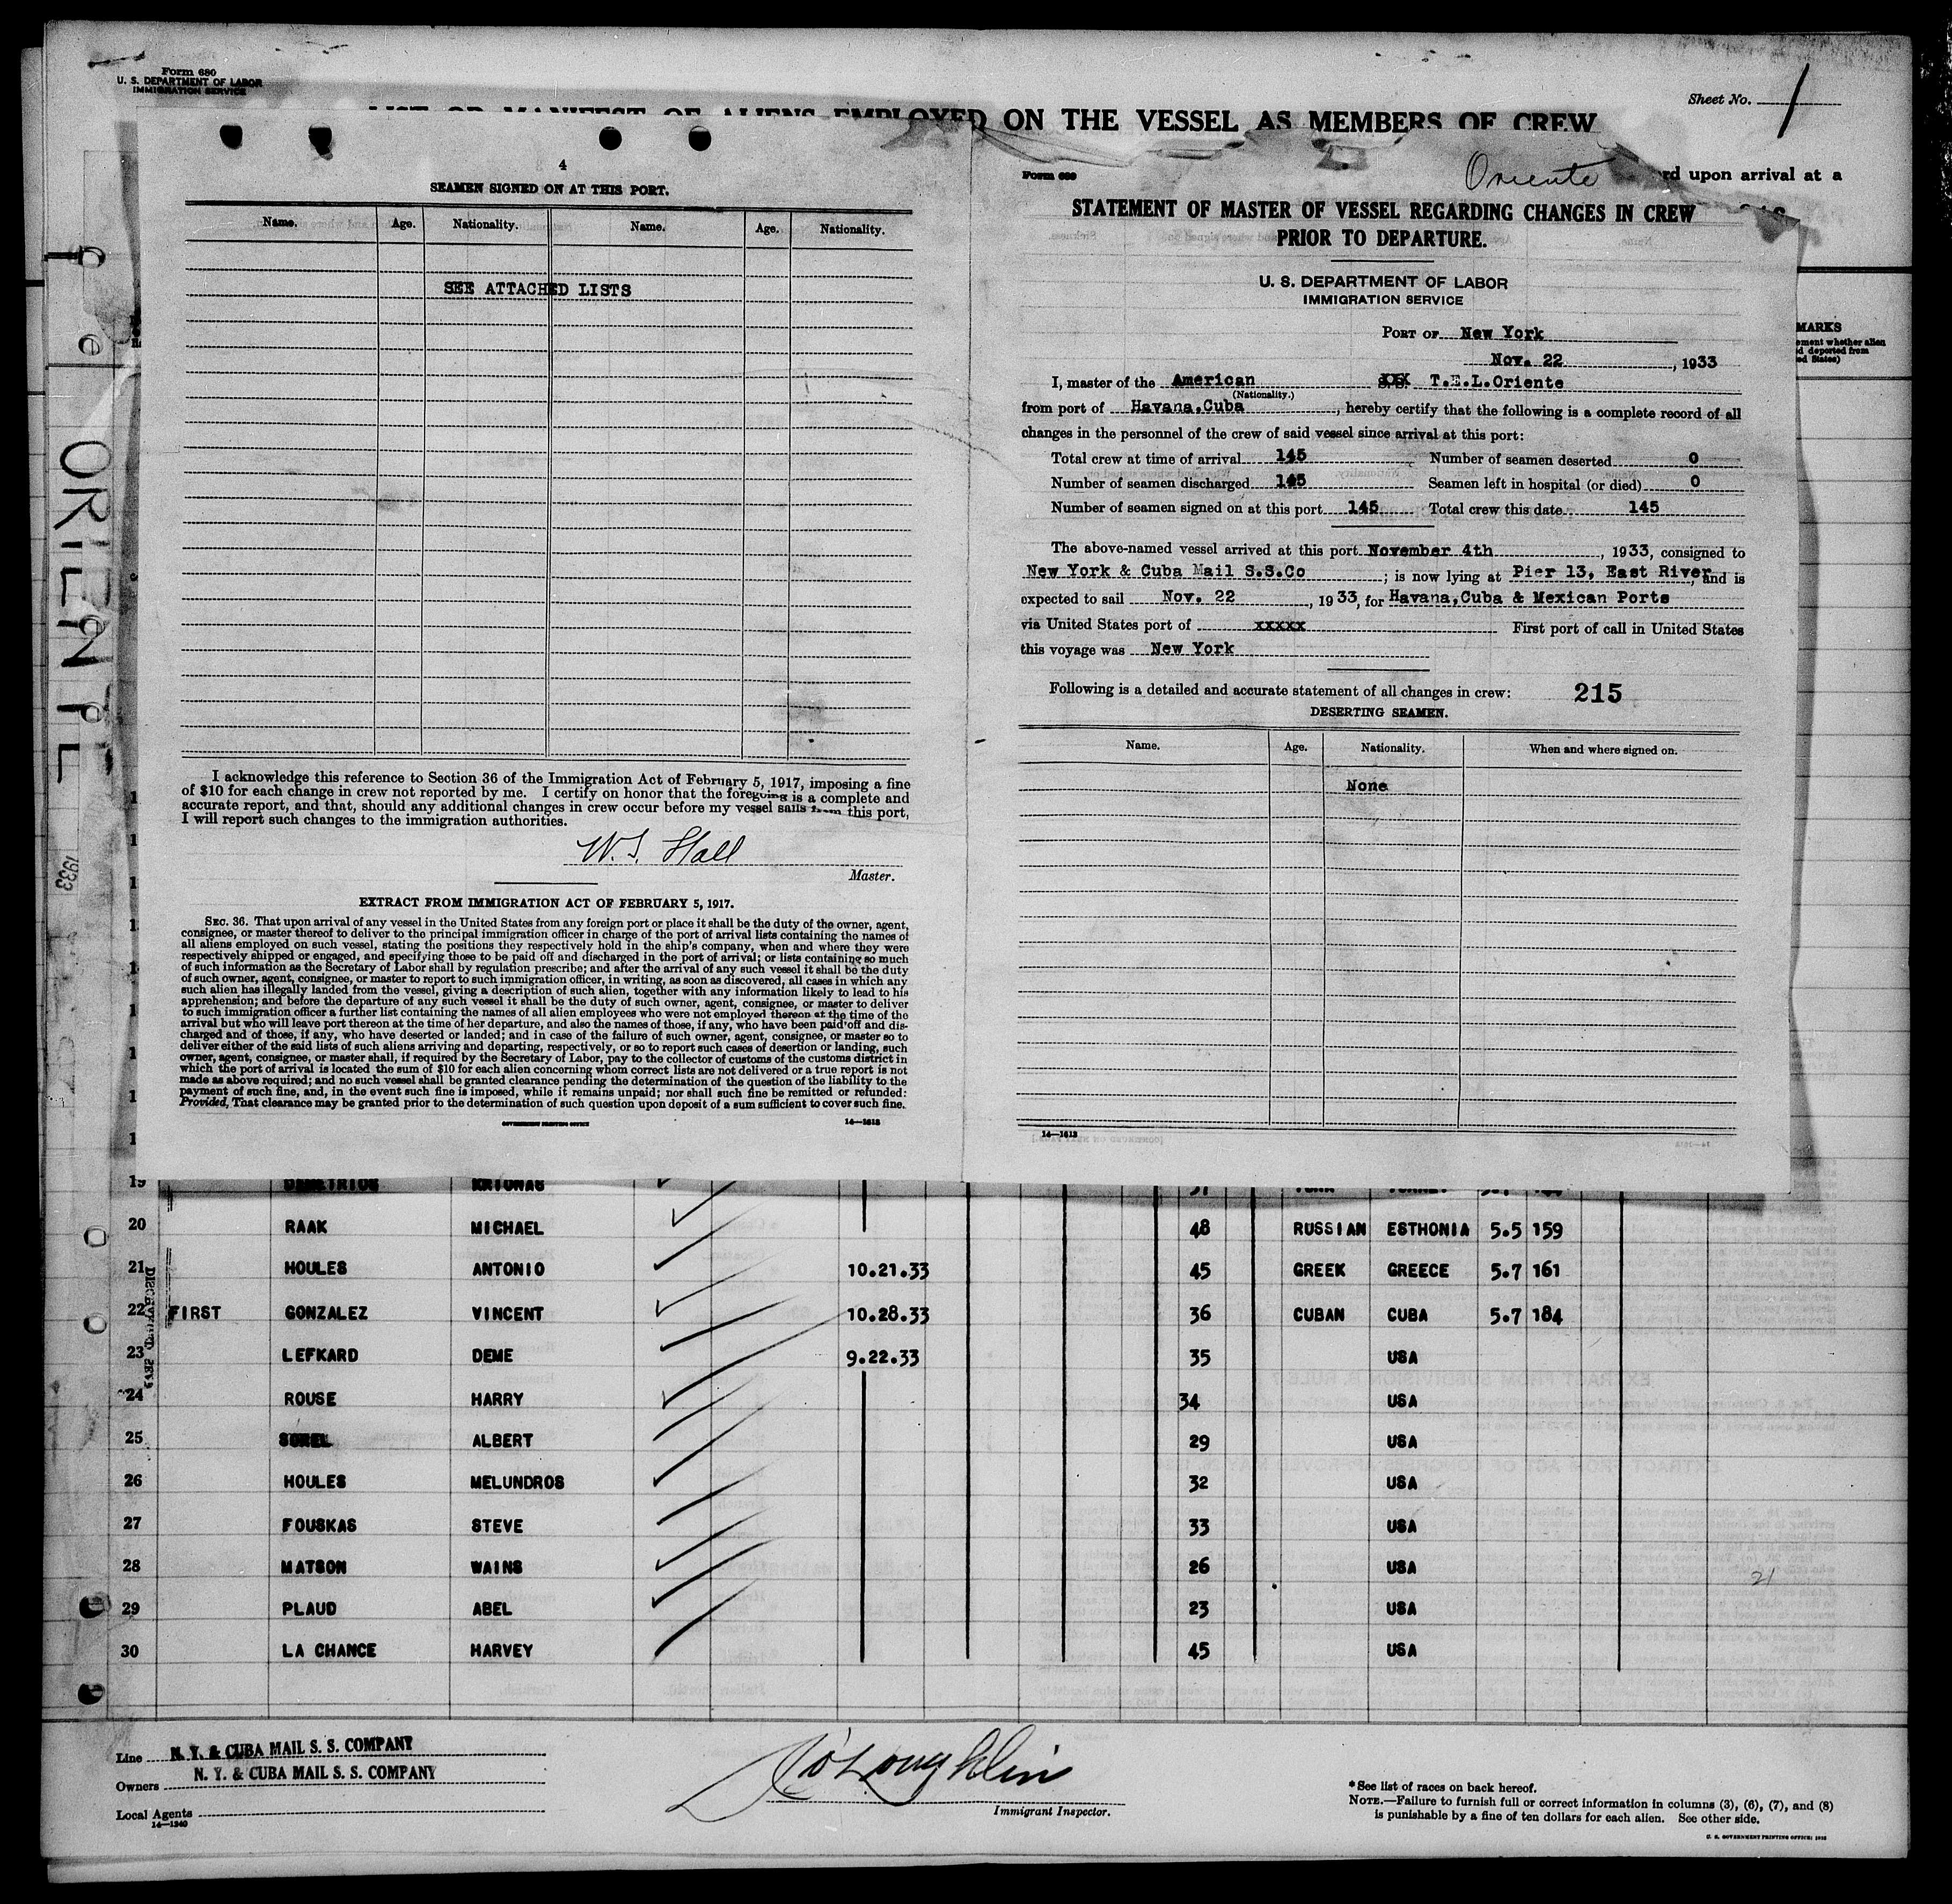 Form 680
U. S. DEPARTMENT OF LABOR
IMMIGRATION SERVICE
Sheet No. 1
LIST OR MANIFEST OF ALIENS EMPLOYED ON THE VESSEL AS MEMBERS OF CREW
rd upon arrival at a
ORIENTE
1933
MARKS
ement whether alien
d deported from
ed States)
4
SEAMEN SIGNED ON AT THIS PORT.
Name. Age. Nationality. Name. Age. Nationality.
SEE ATTACHED LISTS
I acknowledge this reference to Section 36 of the Immigration Act of February 5, 1917, imposing a fine
of $10 for each change in crew not reported by me. I certify on honor that the foregoing is a complete and
accurate report, and that, should any additional changes in crew occur before my vessel sails from this port,
I will report such changes to the immigration authorities.
W. S. Hall
Master.
EXTRACT FROM IMMIGRATION ACT OF FEBRUARY 5, 1917.
SEC. 36. That upon arrival of any vessel in the United States from any foreign port or place it shall be the duty of the owner, agent,
consignee, or master thereof to deliver to the principal immigration officer in charge of the port of arrival lists containing the names of
all aliens employed on such vessel, stating the positions they respectively hold in the ship's company, when and where they were
respectively shipped or engaged, and specifying those to be paid off and discharged in the port of arrival; or lists containing so much
of such information as the Secretary of Labor shall by regulation prescribe; and after the arrival of any such vessel it shall be the duty
of such owner, agent, consignee, or master to report to such immigration officer, in writing, as soon as discovered, all cases in which any
such alien has illegally landed from the vessel, giving a description of such alien, together with any information likely to lead to his
apprehension; and before the departure of any such vessel it shall be the duty of such owner, agent, consignee, or master to deliver
to such immigration officer a further list containing the names of all alien employees who were not employed thereon at the time of the
arrival but who will leave port thereon at the time of her departure, and also the names of those, if any, who have been paid off and dis-
charged and of those, if any, who have deserted or landed; and in case of the failure of such owner, agent, consignee, or master so to
deliver either of the said lists of such aliens arriving and departing, respectively, or so to report such cases of desertion or landing, such
owner, agent, consignee, or master shall, if required by the Secretary of Labor, pay to the collector of customs of the customs district in
which the port of arrival is located the sum of $10 for each alien concerning whom correct lists are not delivered or a true report is not
made as above required; and no such vessel shall be granted clearance pending the determination of the question of the liability to the
payment of such fine, and, in the event such fine is imposed, while it remains unpaid; nor shall such fine be remitted or refunded:
Provided, That clearance may be granted prior to the determination of such question upon deposit of a sum sufficient to cover such fine.
GOVERNMENT PRINTING OFFICE 14—1613
Form 689
Oriente
STATEMENT OF MASTER OF VESSEL REGARDING CHANGES IN CREW
PRIOR TO DEPARTURE.
U. S. DEPARTMENT OF LABOR
IMMIGRATION SERVICE
PORT OF New York
Nov. 22, 1933
I, master of the American XXX T.E.L.Oriente
(Nationality.)
from port of Havana,Cuba, hereby certify that the following is a complete record of all
changes in the personnel of the crew of said vessel since arrival at this port:
Total crew at time of arrival 145 Number of seamen deserted 0
Number of seamen discharged 145 Seamen left in hospital (or died) 0
Number of seamen signed on at this port 145 Total crew this date 145
The above-named vessel arrived at this port November 4th, 1933, consigned to
New York & Cuba Mail S.S.Co; is now lying at Pier 13, East River, and is
expected to sail Nov. 22, 1933, for Havana,Cuba & Mexican Ports
via United States port of xxxxx First port of call in United States
this voyage was New York
Following is a detailed and accurate statement of all changes in crew: 215
DESERTING SEAMEN.
Name. Age. Nationality. When and where signed on.
None
14—1613
19
20 RAAK MICHAEL 48 RUSSIAN ESTHONIA 5.5 159
21 HOULES ANTONIO 10.21.33 45 GREEK GREECE 5.7 161
22 FIRST GONZALEZ VINCENT 10.28.33 36 CUBAN CUBA 5.7 184
23 LEFKARD DEME 9.22.33 35 USA
24 ROUSE HARRY 34 USA
25 ALBERT 29 USA
26 HOULES MELUNDROS 32 USA
27 FOUSKAS STEVE 33 USA
28 MATSON WAINS 26 USA
21
29 PLAUD ABEL 23 USA
30 LA CHANCE HARVEY 45 USA
Line N. Y. & CUBA MAIL S. S. COMPANY
Owners N. Y. & CUBA MAIL S. S. COMPANY
Local Agents
14—1240
O'Loughlin
Immigrant Inspector.
* See list of races on back hereof.
NOTE.—Failure to furnish full or correct information in columns (3), (6), (7), and (8)
is punishable by a fine of ten dollars for each alien. See other side.
U. S. GOVERNMENT PRINTING OFFICE: